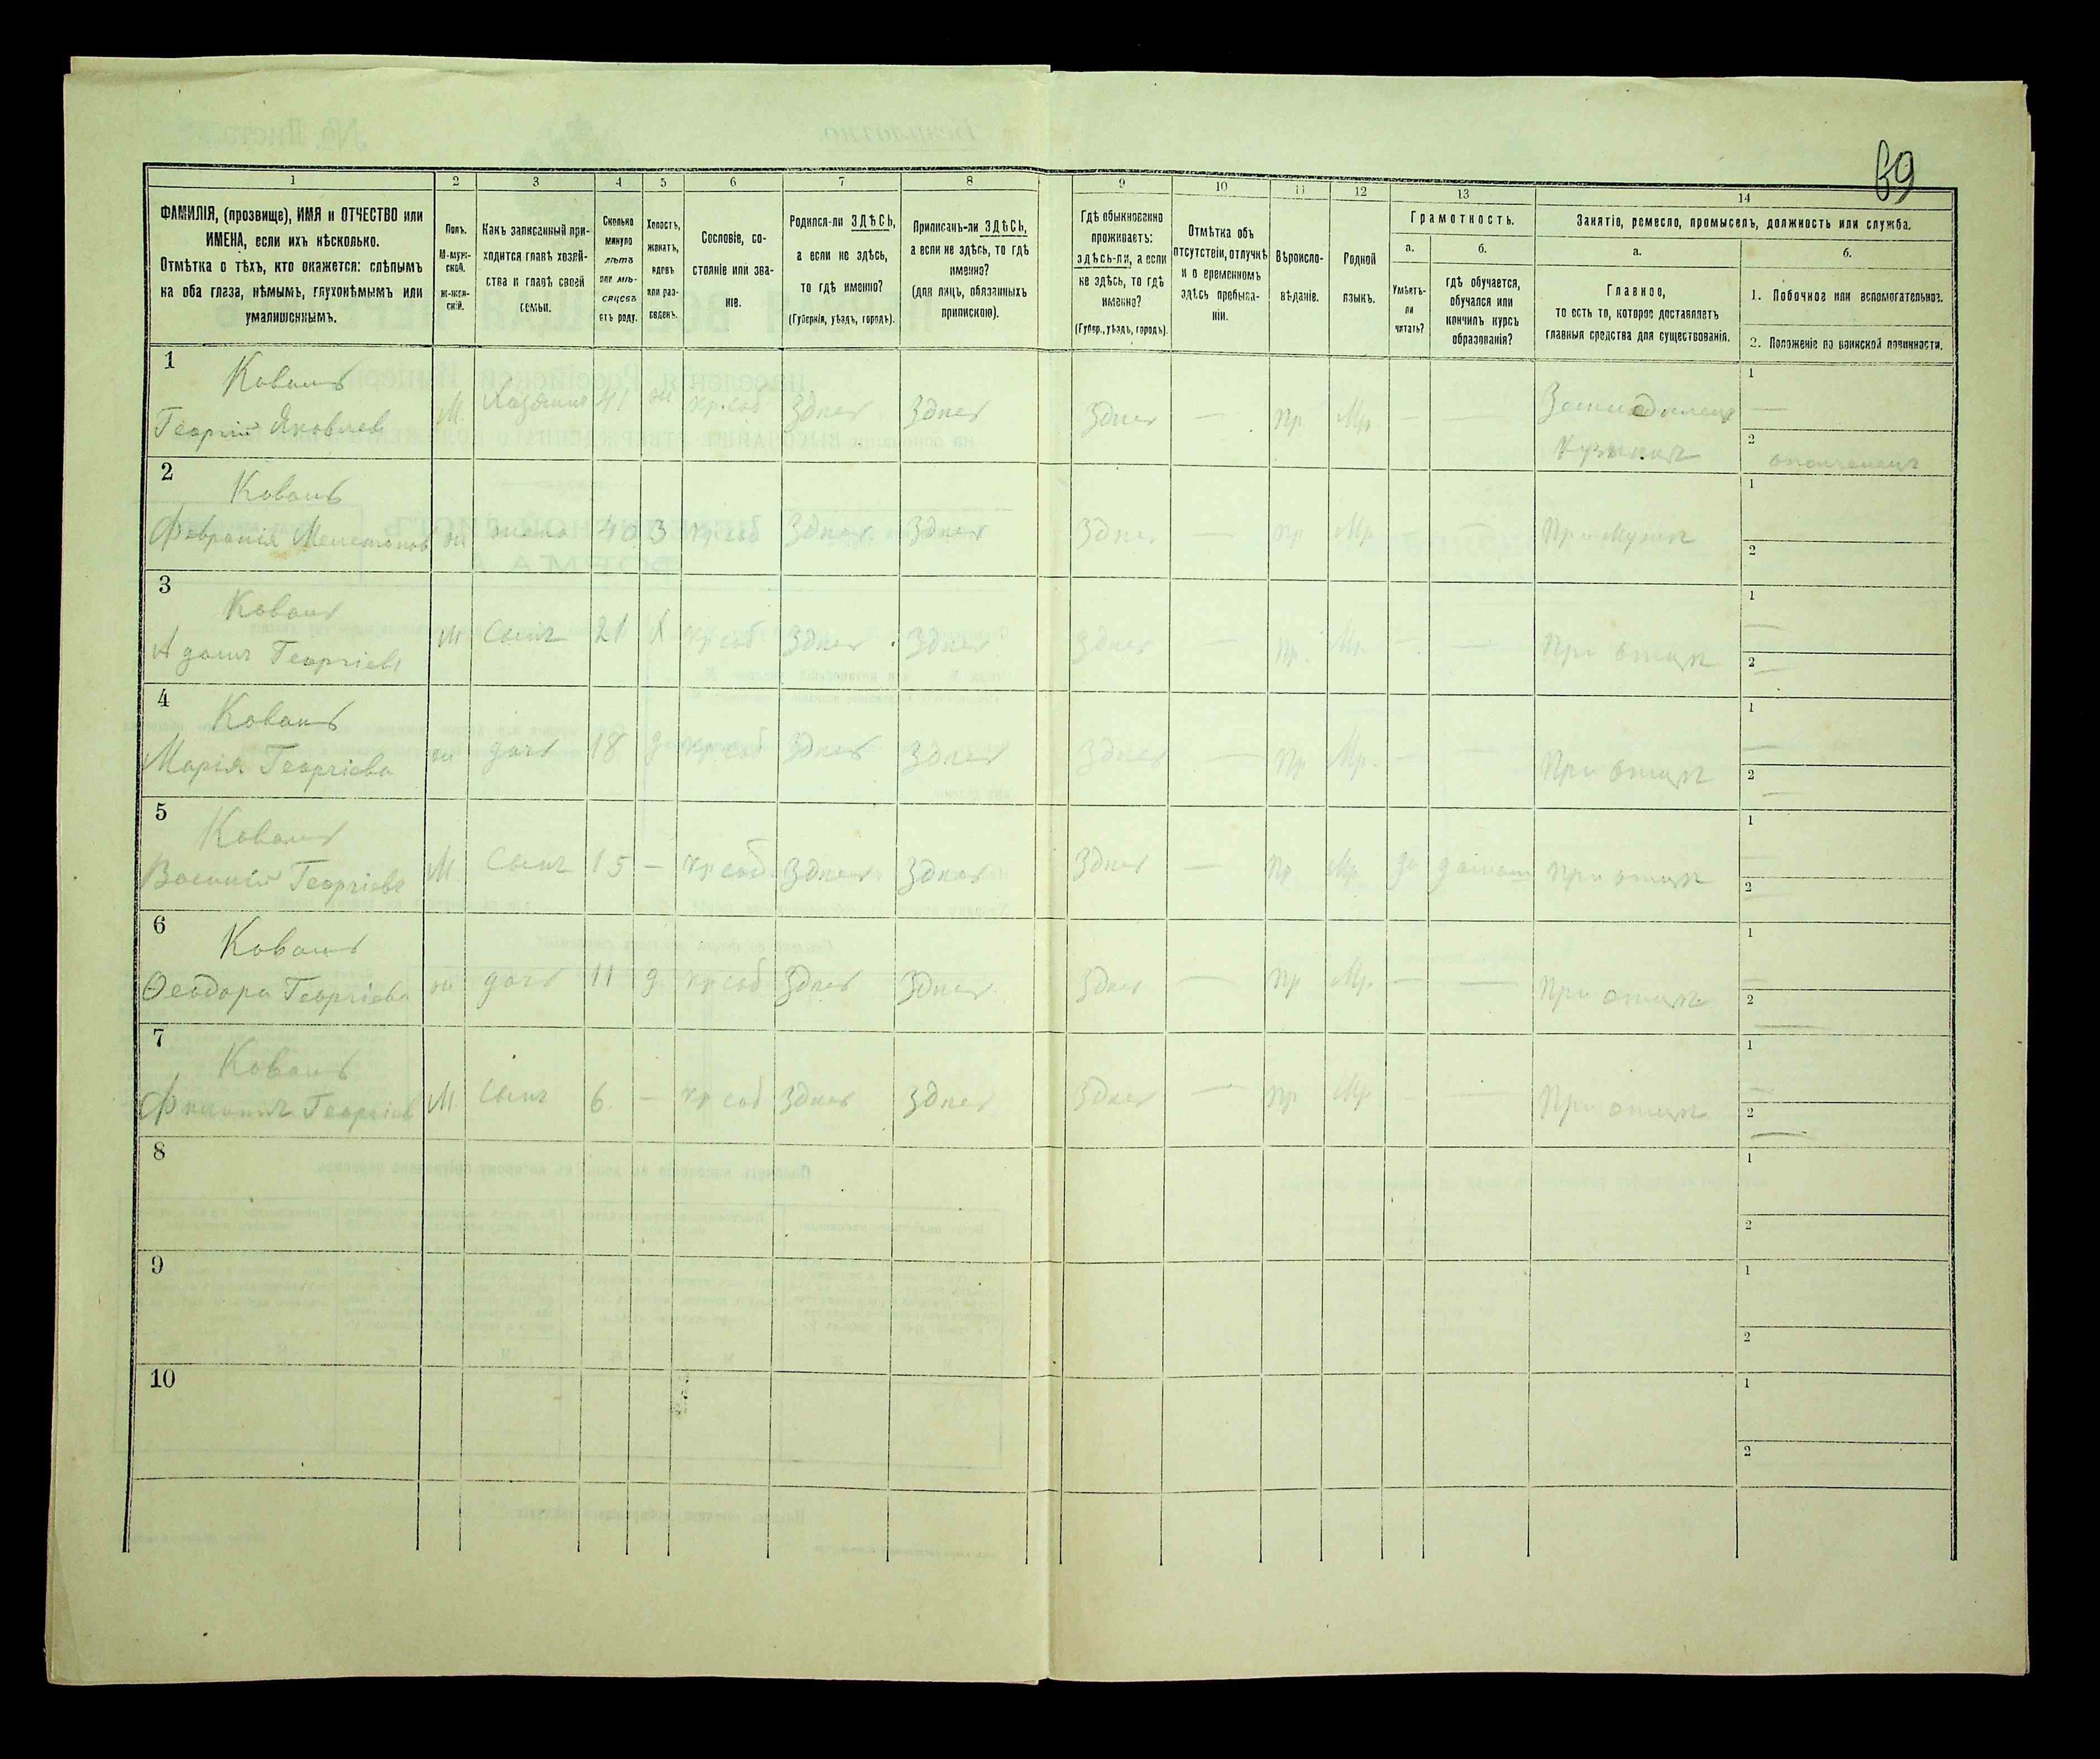 69
1
2
3
4
5
6
7
8
9
10
11
12
13
14
ФАМИЛІЯ, (прозвище), ИМЯ и ОТЧЕСТВО или
ИМЕНА, если ихъ нѣсколько.
Отмѣтка о тѣхъ, кто окажется: слѣпымъ
на оба глаза, нѣмымъ, глухонѣмымъ или
умалишеннымъ.
Полъ.
М-муж-
ской.
Ж-жен-
скій.
Какъ записанный при-
ходится главѣ хозяй-
ства и главѣ своей
семьи.
Сколько
минуло
лѣтъ
или мѣ-
сяцевъ
отъ роду.
Холостъ,
женатъ,
вдовъ
или раз-
веденъ.
Сословіе, со-
стояніе или зва-
ніе.
Родился-ли ЗДѢСЬ,
а если не здѣсь,
то гдѣ именно?
(Губернія, уѣздъ, городъ).
Приписанъ-ли ЗДѢСЬ,
а если не здѣсь, то гдѣ
именно?
(для лицъ, обязанныхъ
припискою).
Гдѣ обыкновенно
проживаетъ:
здѣсь-ли, а если
не здѣсь, то гдѣ
именно?
(Губер., уѣздъ, городъ).
Отмѣтка объ
отсутствіи, отлучкѣ
и о временномъ
здѣсь пребыва-
ніи.
Вѣроиспо-
вѣданіе.
Родной
языкъ.
Грамотность.
а.
Умѣетъ-
ли
читать?
б.
гдѣ обучается,
обучался или
кончилъ курсъ
образованія?
Занятіе, ремесло, промыселъ, должность или служба.
а.
Главное,
то есть то, которое доставляетъ
главныя средства для существованія.
б.
1. Побочное или вспомогательное.
2. Положеніе по воинской повинности.
1
Кованъ
Георгій Яковлев
М. Хозяинъ 41 ж кр. соб Здесь Здесь Здесь — пр Мр. — — Земледелец 1 —
2
2
Кованъ
Февронія ж жена 40 З кр соб Здесь Здесь Здесь — пр Мр — — При Мужѣ 1
2
3
Кованъ
Георгіевъ
М Сынъ 21 Х кр соб Здесь Здесь Здесь — пр. Мр. — — При отцѣ 1 —
2 —
4
Кованъ
Марія Георгіева
ж дочь 18 д кр соб Здесь Здесь Здесь — пр Мр. — — При отцѣ 1 —
2 —
5
Кованъ
Василій Георгіевъ
М. Сынъ 15 — кр соб Здесь Здесь Здесь — пр Мр да При отцѣ 1 —
2 —
6
Кованъ
Ѳеодора Георгіева
ж дочь 11 д кр соб Здесь Здесь Здесь — пр Мр. — — При отцѣ 1 —
2 —
7
Кованъ
Георгіев
М. Сынъ 6 — кр соб Здесь Здесь Здесь — пр Мр — — При отцѣ 1 —
2 —
8
1
2
9
1
2
10
1
2